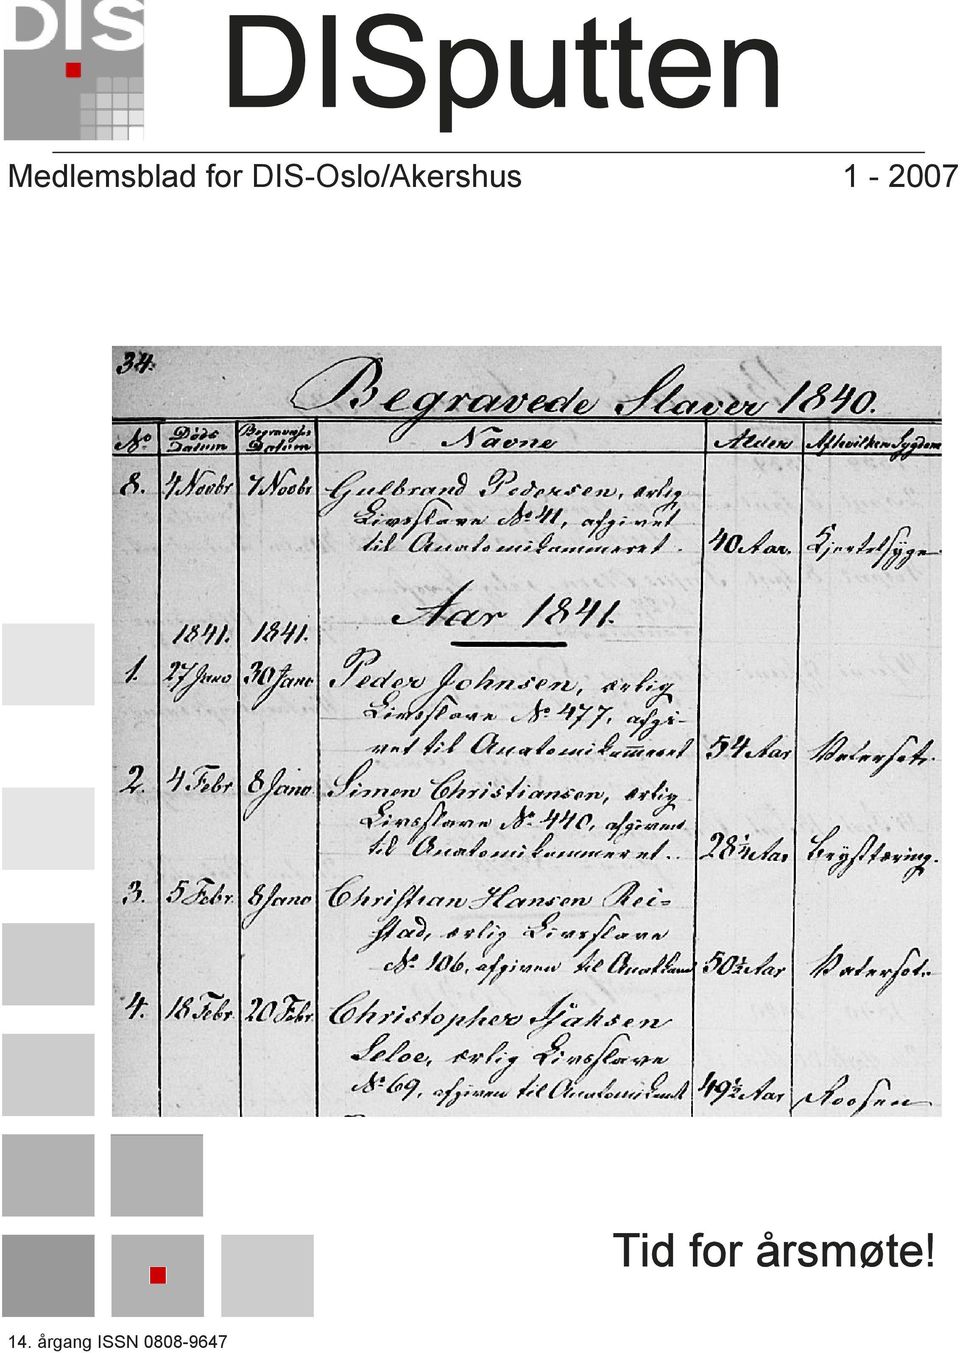 DIS
DISputten
Medlemsblad for DIS-Oslo/Akershus 1 - 2007
34.
Begravede Slaver 1840.
No. Döds Datum Begravelses Datum Navne Alder Af hvilken Sygdom
8. 4 Novbr 7 Novbr Gulbrand Pedersen, ærlig
Livsslave No 41, afgivet
til Anatomikammeret. 40 Aar.
Aar 1841.
1841. 1841.
1. 27 Janv 30 Janv Peder Johnsen, ærlig
Livsslave No 477, afgi-
vet til Anatomikam̅eret 54 Aar Vatersot.
2. 4 Febr 8 Janv Simen Christiansen, ærlig
Livsslave No 440, afgiven
til Anatomikammeret. 28 1/4 Aar Brysttæring.
3. 5 Febr. 8 Janv Christian Hansen Rei=
stad, ærlig Livsslave
No 106, afgiven til 50 1/2 Aar Vatersot.
4. 18 Febr. 20 Febr. Christopher
Seloe, ærlig Livsslave
No 69, afgiven til 49 1/2 Aar Roosen
Tid for årsmøte!
14. årgang ISSN 0808-9647